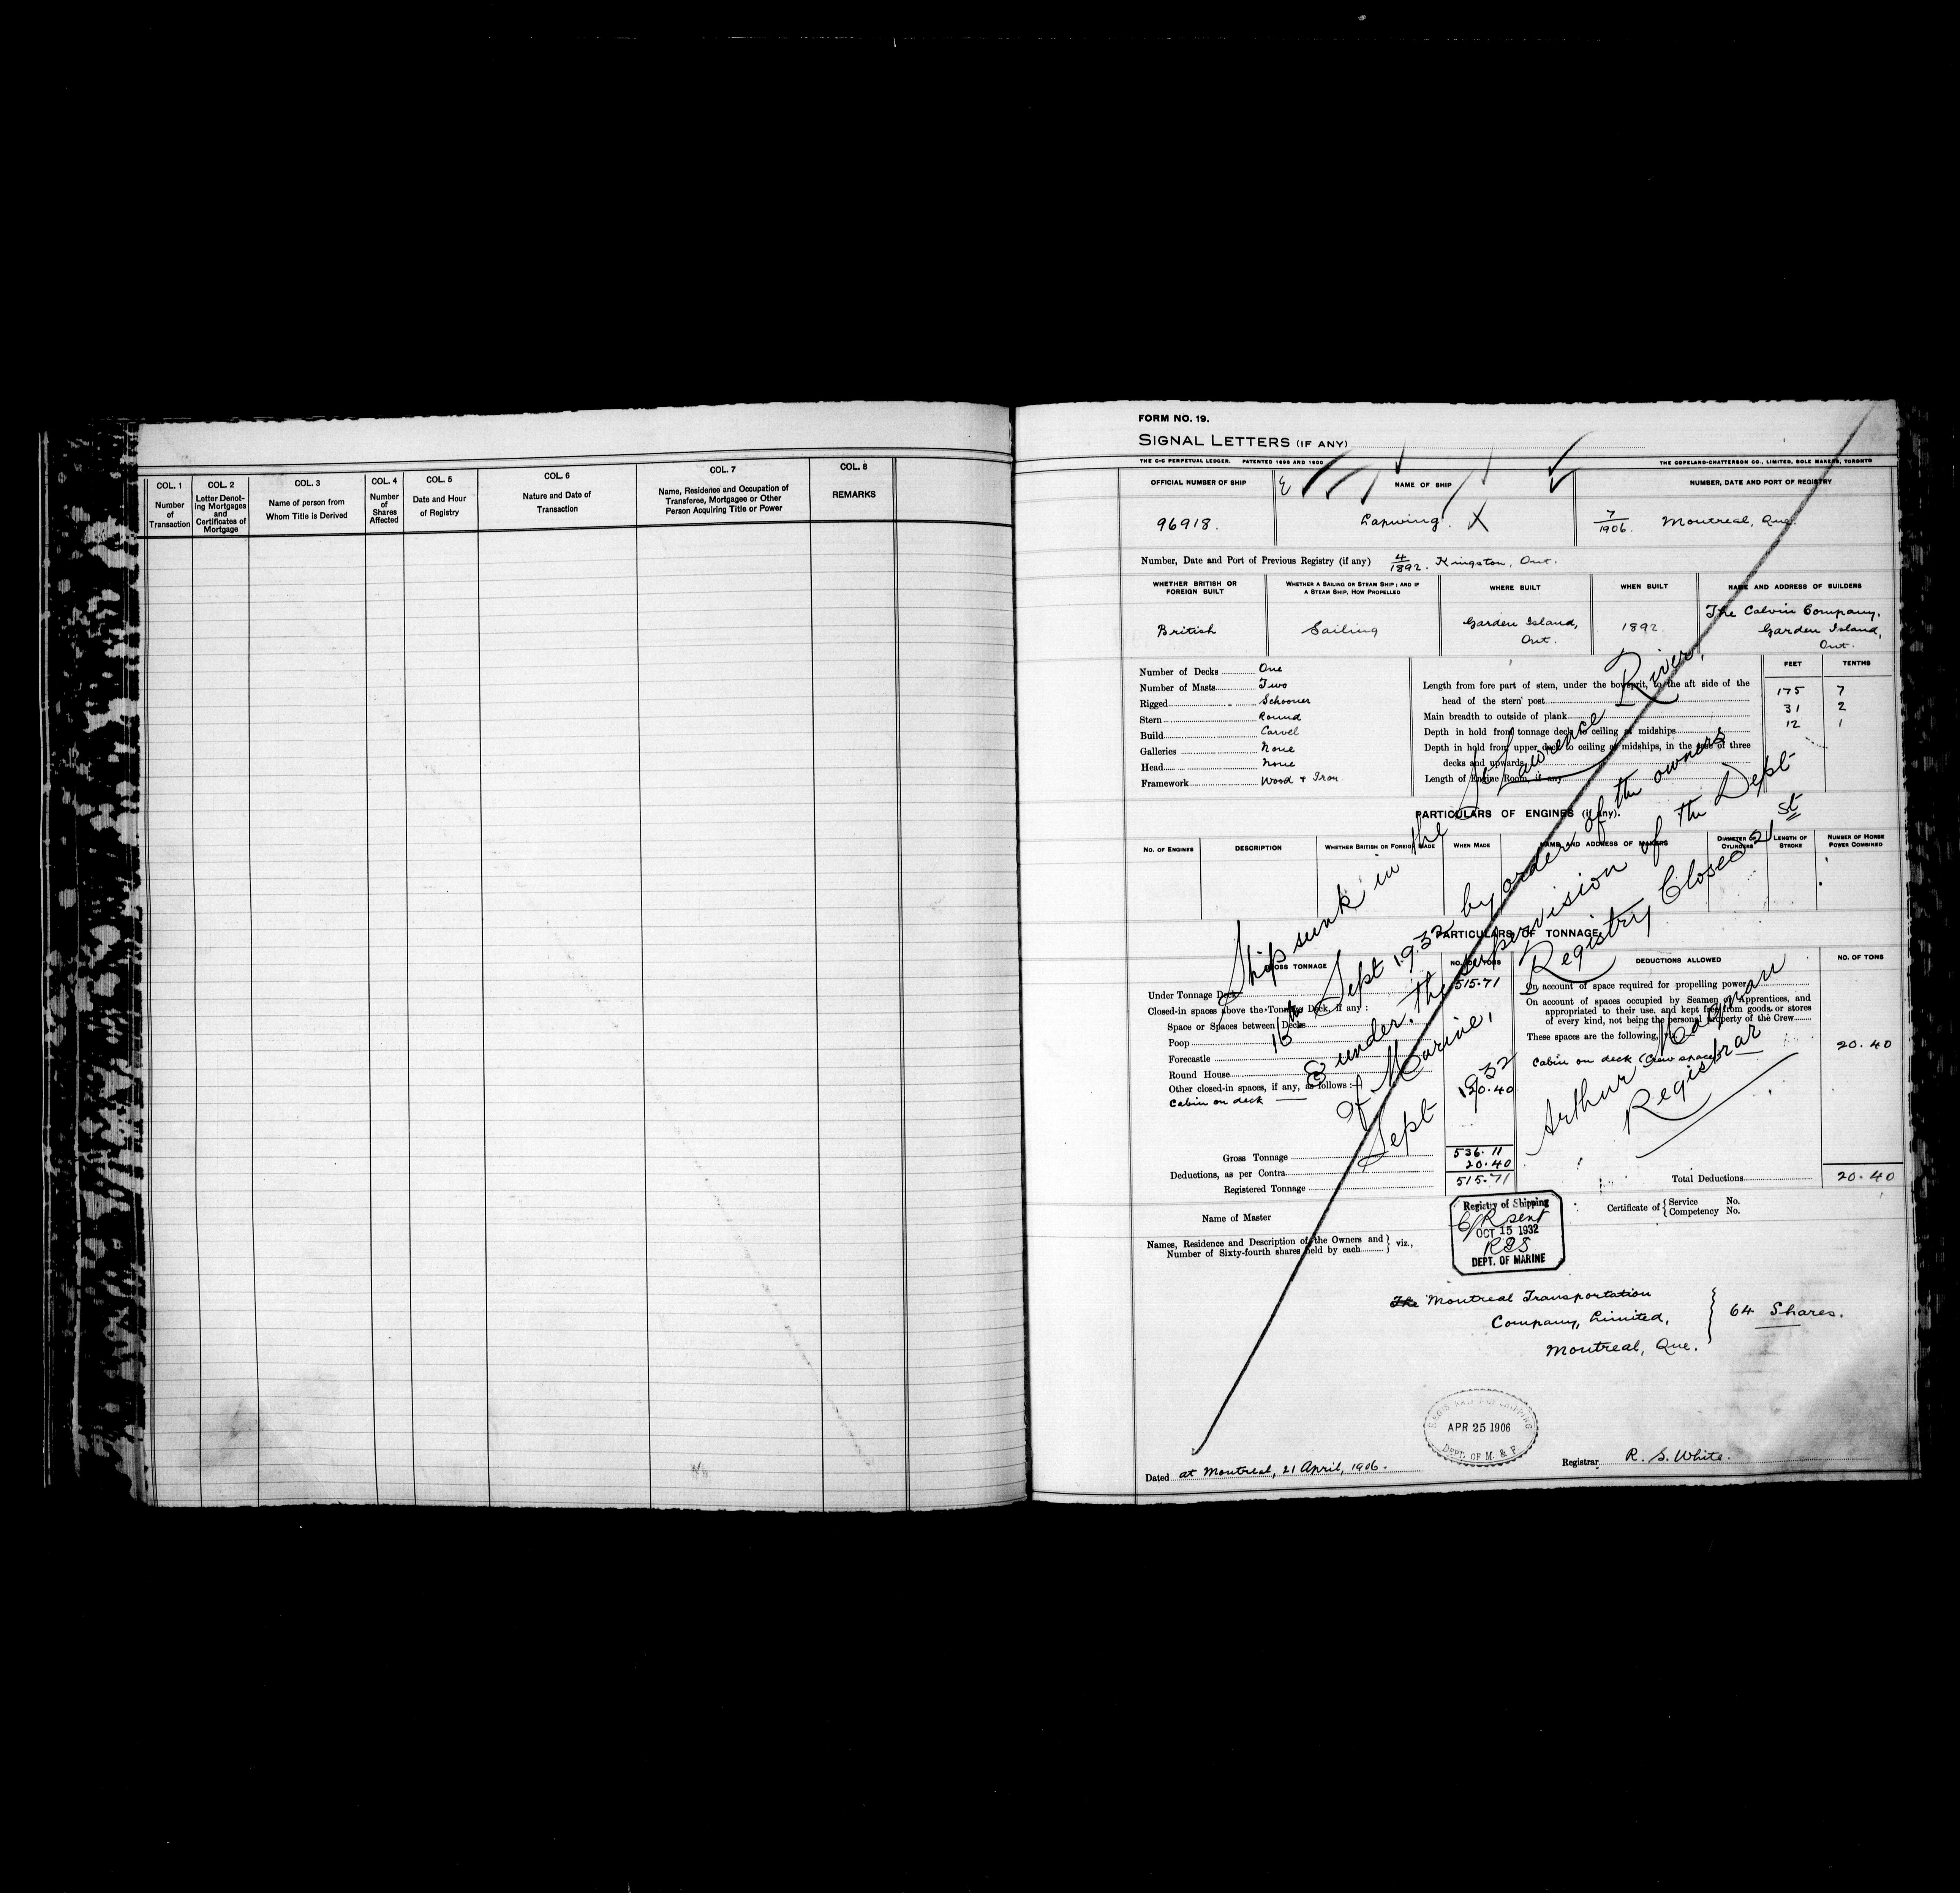 COL. 1
Number
of
Transaction
COL. 2
Letter Denot-
ing Mortgages
and
Certificates of
Mortgage
COL. 3
Name of person from
Whom Title is Derived
COL. 4
Number
of
Shares
Affected
COL. 5
Date and Hour
of Registry
COL. 6
Nature and Date of
Transaction
COL. 7
Name, Residence and Occupation of
Transferee, Mortgagee or Other
Person Acquiring Title or Power
COL. 8
REMARKS
FORM NO. 19.
SIGNAL LETTERS (IF ANY)
THE C-C PERPETUAL LEDGER. PATENTED 1896 AND 1900
THE COPELAND-CHATTERSON CO., LIMITED, SOLE MAKERS, TORONTO
OFFICIAL NUMBER OF SHIP
NAME OF SHIP
NUMBER, DATE AND PORT OF REGISTRY
96918.
Lapwing. X
7/1906. Montreal, Que.
Number, Date and Port of Previous Registry (if any) 4/1892. Kingston, Ont.
WHETHER BRITISH OR
FOREIGN BUILT
WHETHER A SAILING OR STEAM SHIP; AND IF
A STEAM SHIP, HOW PROPELLED
WHERE BUILT
WHEN BUILT
NAME AND ADDRESS OF BUILDERS
British
Sailing
Garden Island,
Ont.
1892
The Calvin Company,
Garden Island,
Ont.
Number of Decks One
Number of Masts Two
Rigged Schooner
Stern Round
Build Carvel
Galleries None
Head None
Framework Wood + Iron
FEET TENTHS
Length from fore part of stem, under the bowsprit, to the aft side of the
head of the stern post 175 7
Main breadth to outside of plank 31 2
Depth in hold from tonnage deck to ceiling at midships 12 1
Depth in hold from upper deck to ceiling at midships, in the case of three
decks and upwards
Length of Engine Room, if any
PARTICULARS OF ENGINES (if any).
NO. OF ENGINES
DESCRIPTION
WHETHER BRITISH OR FOREIGN MADE
WHEN MADE
NAME AND ADDRESS OF MAKERS
DIAMETER OF
CYLINDERS
LENGTH OF
STROKE
NUMBER OF HORSE
POWER COMBINED
Ship sunk in the St Lawrence River,
16th Sept 1932 by order of the owners
& under the supervision of the Dept
of Marine, Registry Closed 21st
Sept 1932
Arthur
Registrar
PARTICULARS OF TONNAGE
GROSS TONNAGE
NO. OF TONS
Under Tonnage Deck 515.71
Closed-in spaces above the Tonnage Deck, if any :
Space or Spaces between Decks
Poop
Forecastle
Round House
Other closed-in spaces, if any, as follows :
Cabin on deck 20.40
Gross Tonnage 536.11
Deductions, as per Contra 20.40
Registered Tonnage 515.71
DEDUCTIONS ALLOWED
NO. OF TONS
On account of space required for propelling power
On account of spaces occupied by Seamen or Apprentices, and
appropriated to their use, and kept free from goods or stores
of every kind, not being the personal property of the Crew
These spaces are the following,
Cabin on deck (Crew space) 20.40
Total Deductions 20.40
Name of Master
Certificate of { Service No.
Competency No.
Registry of Shipping
C/R sent
OCT 15 1932
DEPT. OF MARINE
Names, Residence and Description of the Owners and
Number of Sixty-fourth shares held by each } viz.,
The Montreal Transportation
Company, Limited,
Montreal, Que.
64 Shares.
APR 25 1906
DEPT. OF M. & F.
Dated at Montreal, 21 April, 1906.
Registrar R. S. White.